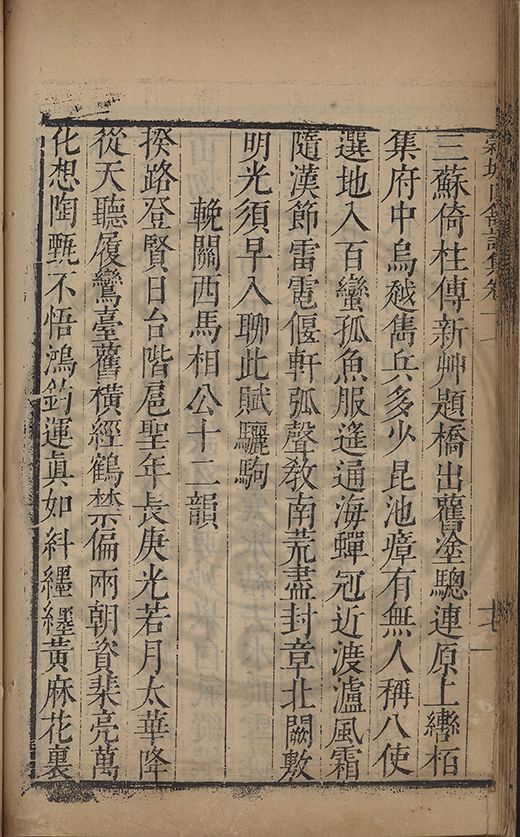 三蘇倚柱傳新艸題橋出舊塗驄連原上轡栢
集府中烏越雋兵多少昆池瘴有無人稱八使
選地入百蠻孤魚服遙通海蟬冠近渡瀘風霜
隨漢節雷電偃軒弧聲敎南荒盡封章北闕敷
明光須早入聊此賦驪駒
輓關西馬相公十二韻
揆路登賢日台階扈聖年長庚光若月太華降
從天聽履鸞臺舊橫經鶴禁偏兩朝資棐亮萬
化想陶甄不悟鴻鈞運眞如糾纆纏黃麻花裏